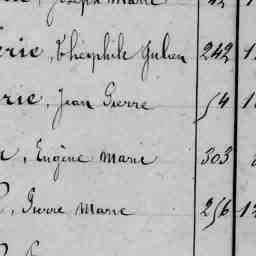 , Joseph Marie 42
erie, Théophile Julien 242
rie, Jean Pierre 54
, Eugène Marie 303
, Pierre Marie 256